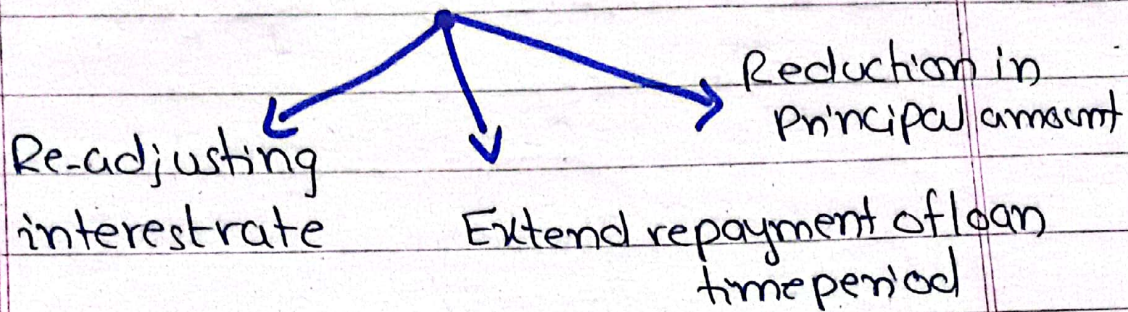 Re-adjusting
interest rate
Extend repayment of loan
time period
Reduction in
principal amount